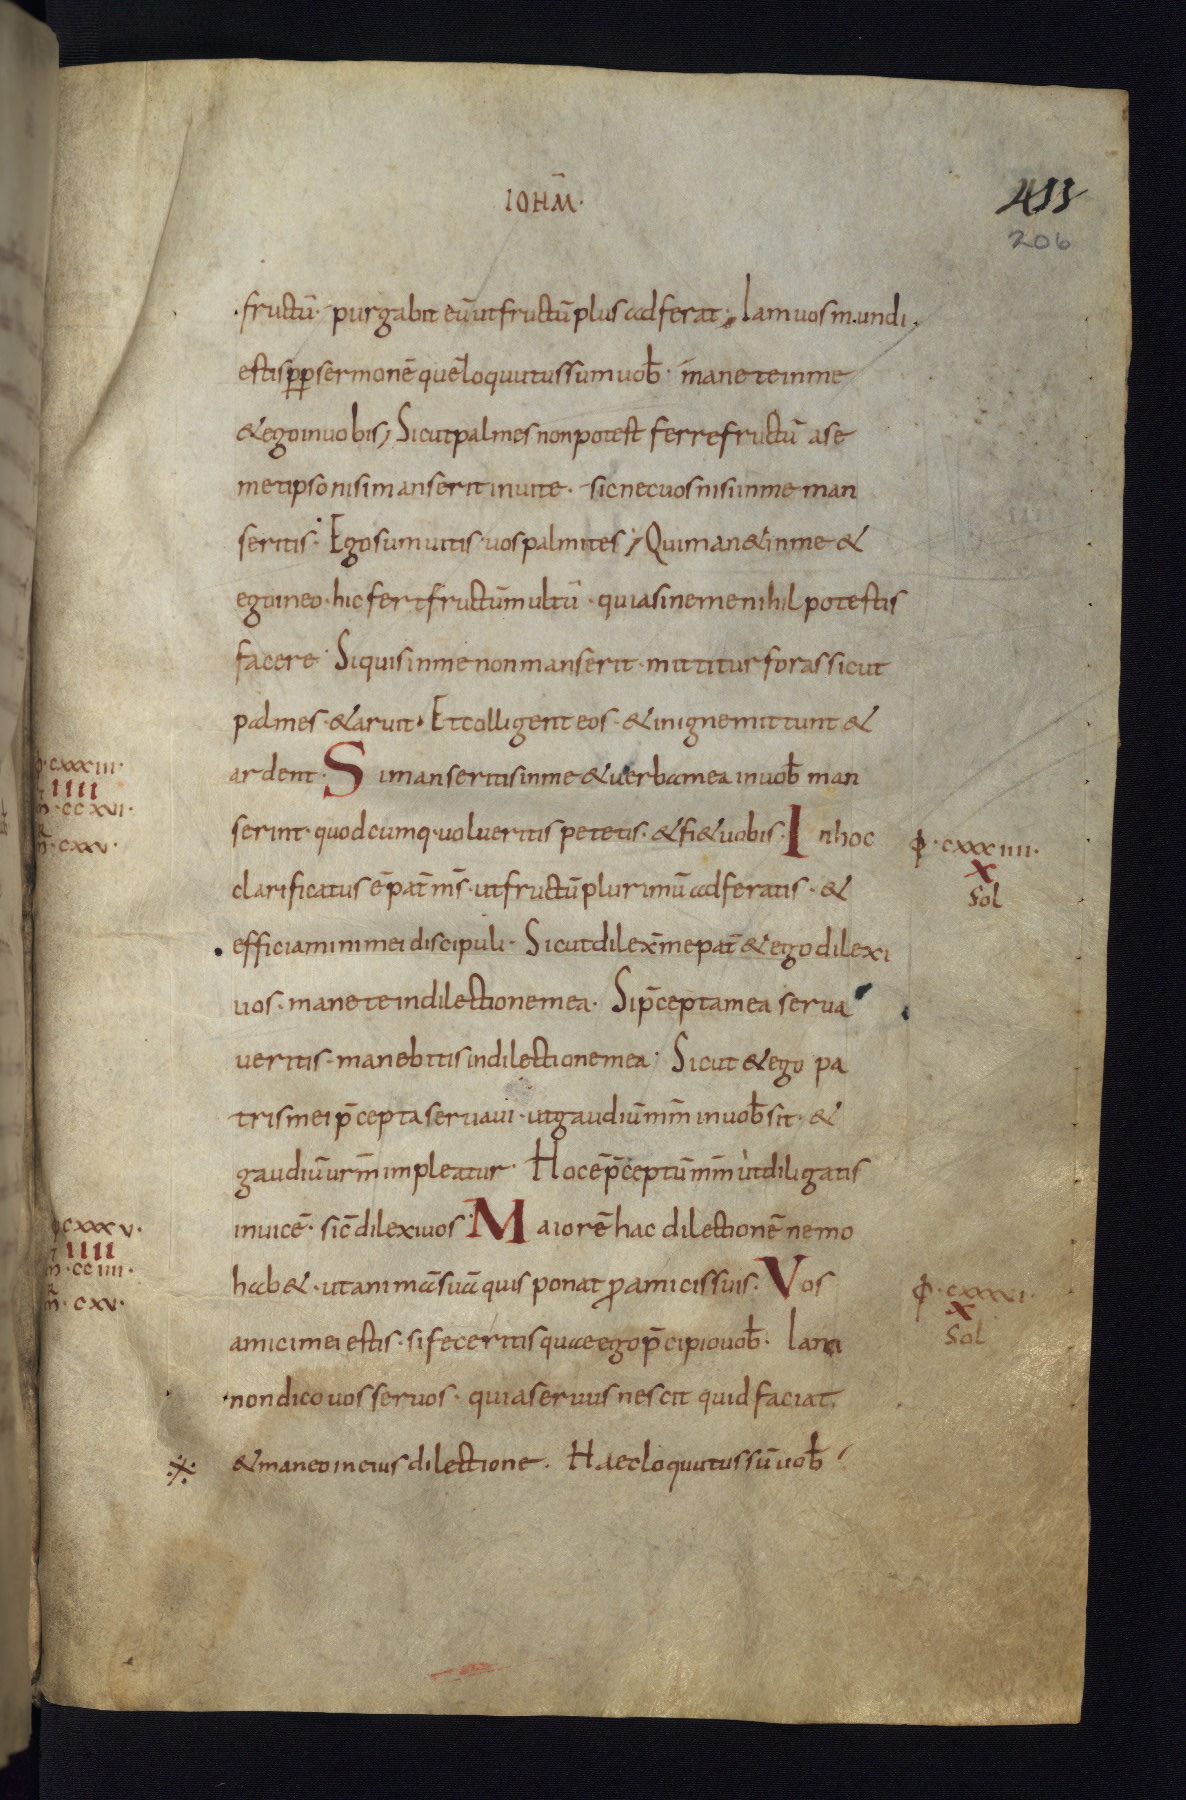 IOHM̄·
411
206
·fructū· purgabit eū ut fructū plus adferat; Iam vos mundi·
estis pp sermonē quē loquutus sum vob̄· manete in me
& ego in vobis; Sicut palmes non potest ferre fructū a se
metipso nisi manserit in vite· sic nec vos nisi in me man
seritis· Ego sum vitis· vos palmites; Qui man& in me &
ego in eo· hic fert fructū multū· quia sine me nihil potestis
facere· Si quis in me non manserit· mittitur foras sicut
palmes· & aruit· Et colligent eos· & in igne mittunt &
ardent· Si manseritis in me & verba mea in vob̄ man
serint· quodcumq· volueritis petetis· & fi& vobis· In hoc
clarificatus ē pat̄ ms̄· ut fructū plurimū adferatis· &
efficiamini mei discipuli· Sicut dilex̄ me pat̄ & ego dilexi
vos· manete in dilectione mea· Si p̄cepta mea serva
veritis· manebitis in dilectione mea· Sicut & ego pa
tris mei p̄cepta servavi· ut gaudiū mm̄ in vob̄ sit· &
gaudiū vrm̄ impleatur· Hoc ē p̄ceptū mm̄ ut diligatis
invicē· sic̄ dilexi vos· Maiorē hac dilectionē nemo
hab&· ut animā suā quis ponat p amicis suis· Vos
amici mei estis· si feceritis quae ego p̄cipio vob̄· Iam
non dico vos servos· quia servus nescit quid faciat
& maneo in eius dilectione· Haec loquutus sū vob̄
·cxxxiii·
IIII
·ccxvi·
·cxxv·
·cxxxiiii·
X
Sol
cxxxv·
IIII
·cciiii·
·cxv·
·cxxxvi·
X
Sol